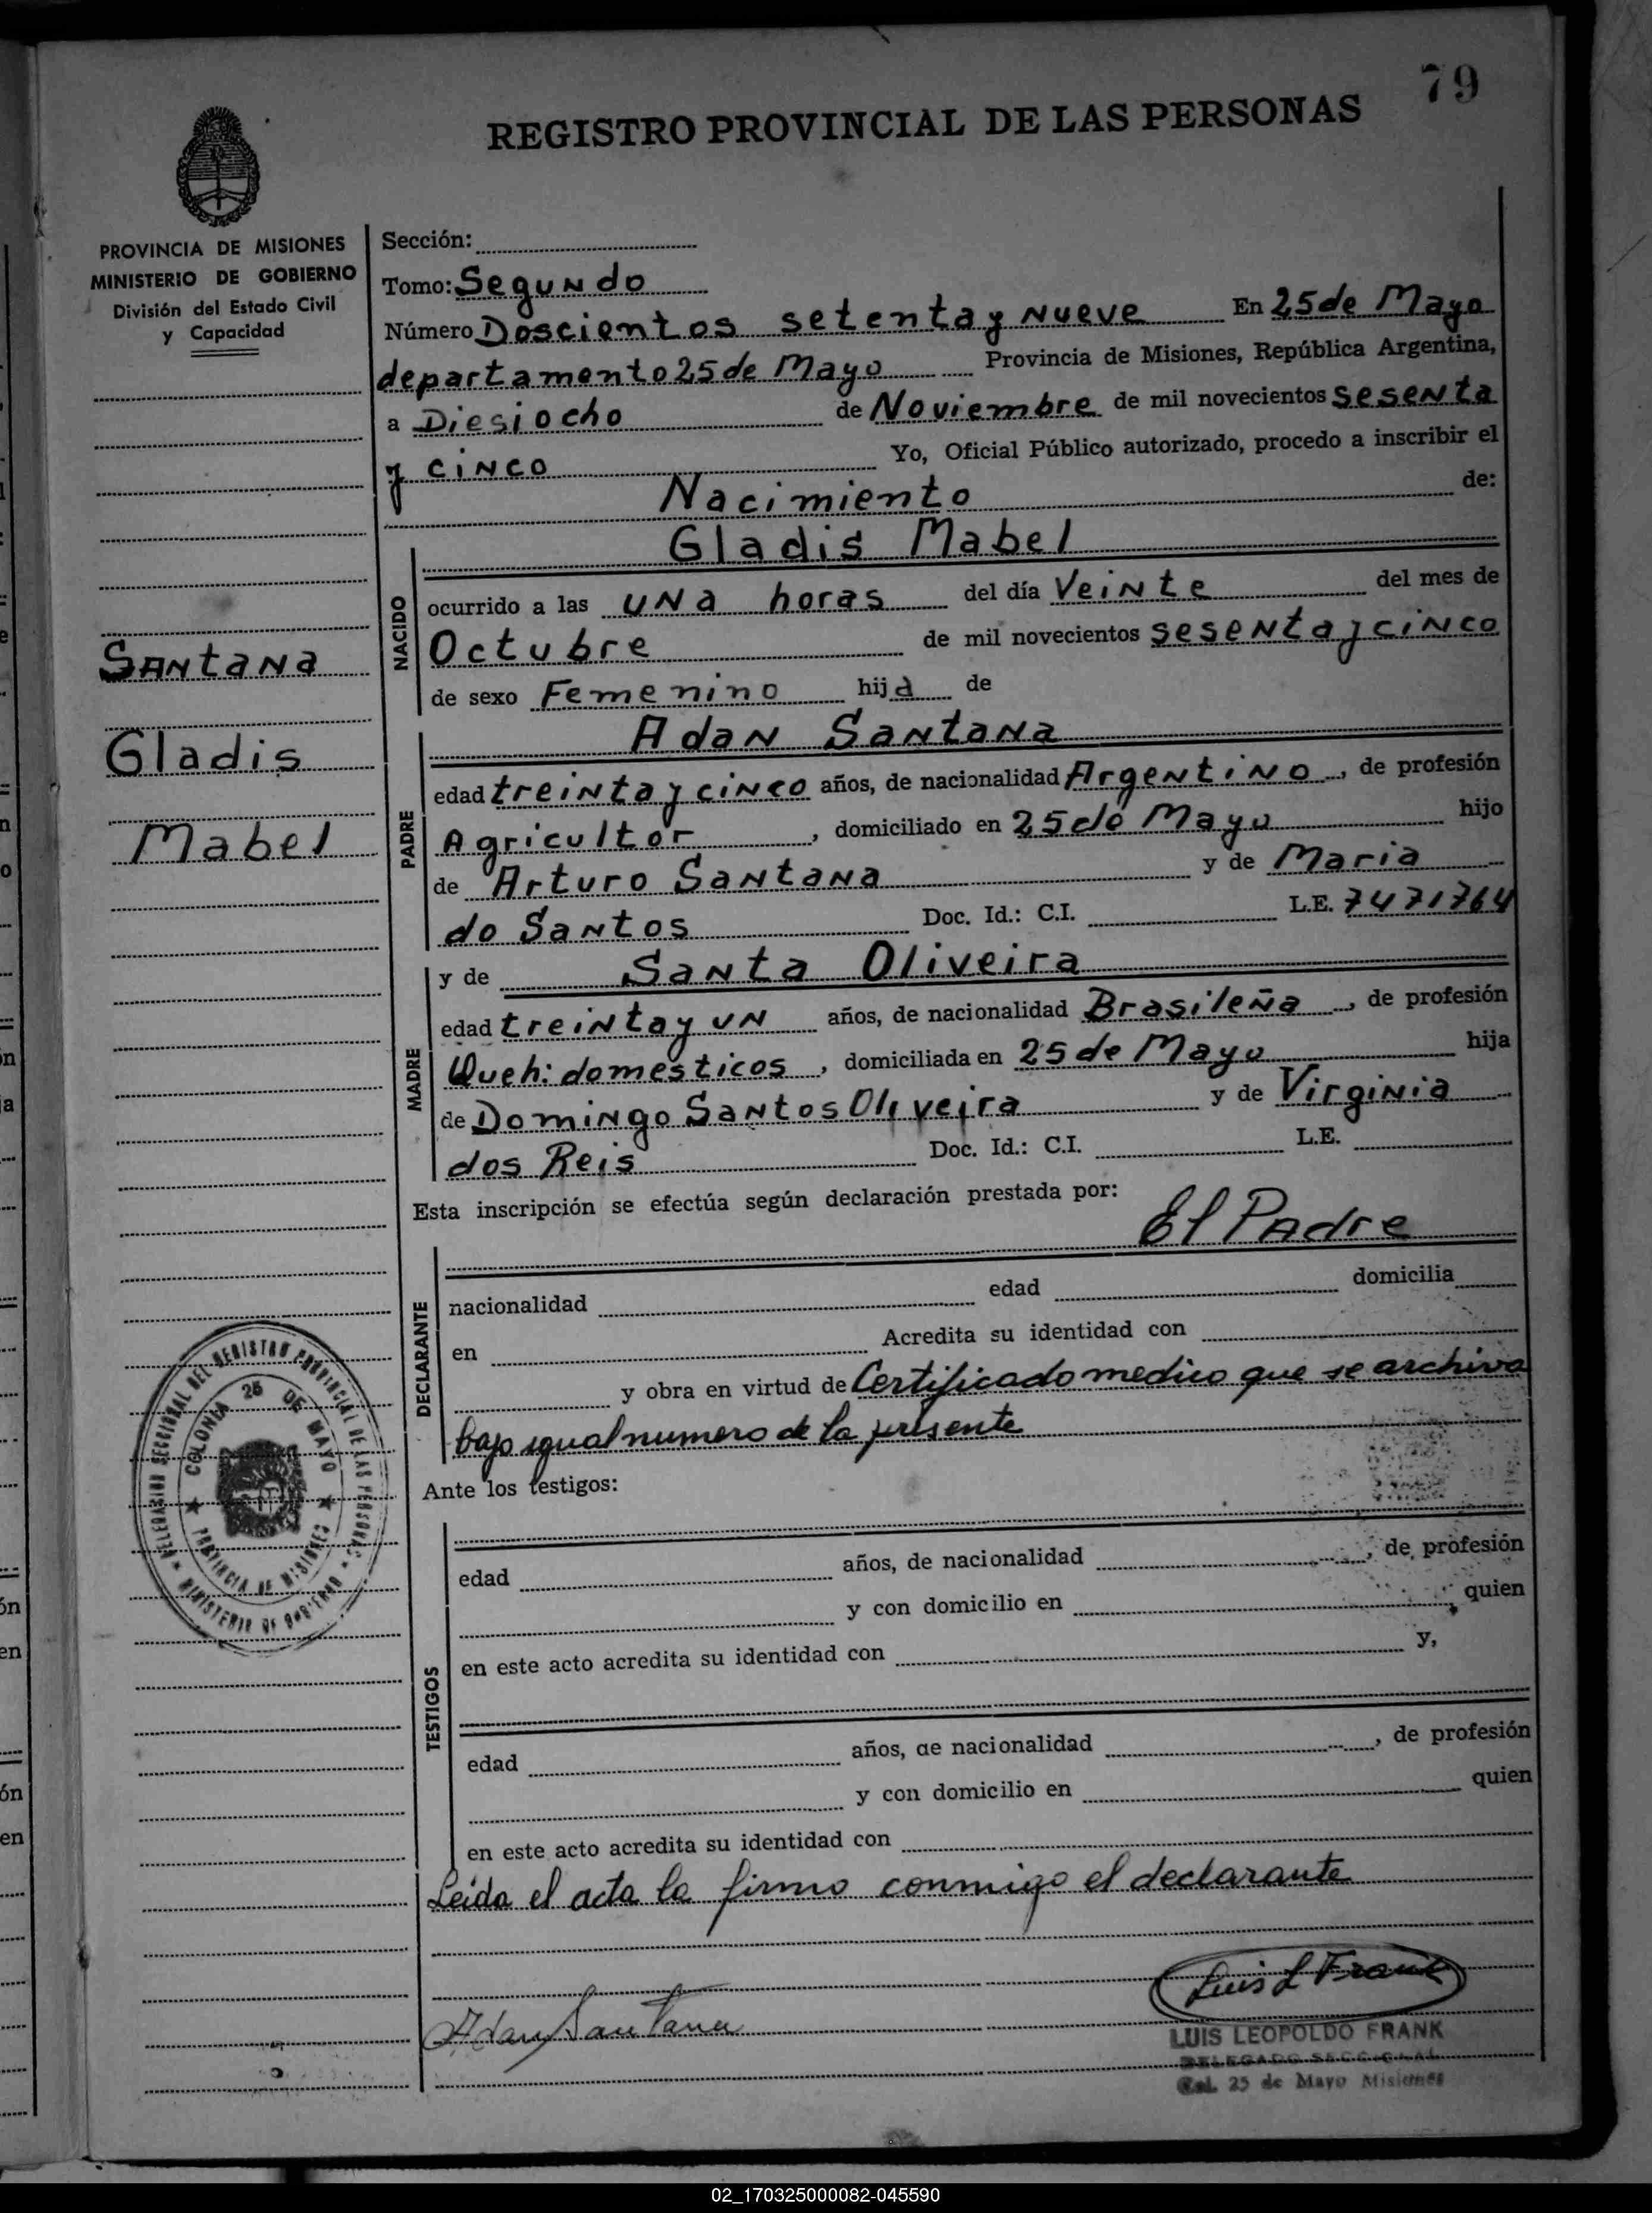 79
REGISTRO PROVINCIAL DE LAS PERSONAS
PROVINCIA DE MISIONES
MINISTERIO DE GOBIERNO
División del Estado Civil
y Capacidad
Santana
Gladis
Mabel
Sección:
Tomo: Segundo
Número Doscientos setenta y nueve En 25 de Mayo
departamento 25 de Mayo Provincia de Misiones, República Argentina,
a Diesiocho de Noviembre de mil novecientos sesenta
y cinco Yo, Oficial Público autorizado, procedo a inscribir el
Nacimiento de:
Gladis Mabel
NACIDO
ocurrido a las una horas del día Veinte del mes de
Octubre de mil novecientos sesenta y cinco
de sexo Femenino hija de
Adan Santana
PADRE
edad treinta y cinco años, de nacionalidad Argentino, de profesión
Agricultor, domiciliado en 25 de Mayo hijo
de Arturo Santana y de Maria
do Santos Doc. Id.: C.I. L.E. 7471764
y de Santa Oliveira
MADRE
edad treinta y un años, de nacionalidad Brasileña, de profesión
Queh: domesticos, domiciliada en 25 de Mayo hija
de Domingo Santos Oliveira y de Virginia
dos Reis Doc. Id.: C.I. L.E.
Esta inscripción se efectúa según declaración prestada por:
El Padre
DECLARANTE
nacionalidad edad domicilia
en Acredita su identidad con
y obra en virtud de Certificado medico que se archiva
bajo igual numero de la presente
Ante los testigos:
TESTIGOS
edad años, de nacionalidad , de profesión
y con domicilio en , quien
en este acto acredita su identidad con y,
edad años, de nacionalidad , de profesión
y con domicilio en quien
en este acto acredita su identidad con
Leida el acta la firmo conmigo el declarante
Adan Santana
Luis L Frank
LUIS LEOPOLDO FRANK
DELEGADO SECCIONAL
Col. 25 de Mayo Misiones
DELEGACION SECCIONAL DEL REGISTRO PROVINCIAL DE LAS PERSONAS
MINISTERIO DE GOBIERNO
COLONIA 25 DE MAYO
PROVINCIA DE MISIONES
02_170325000082-045590